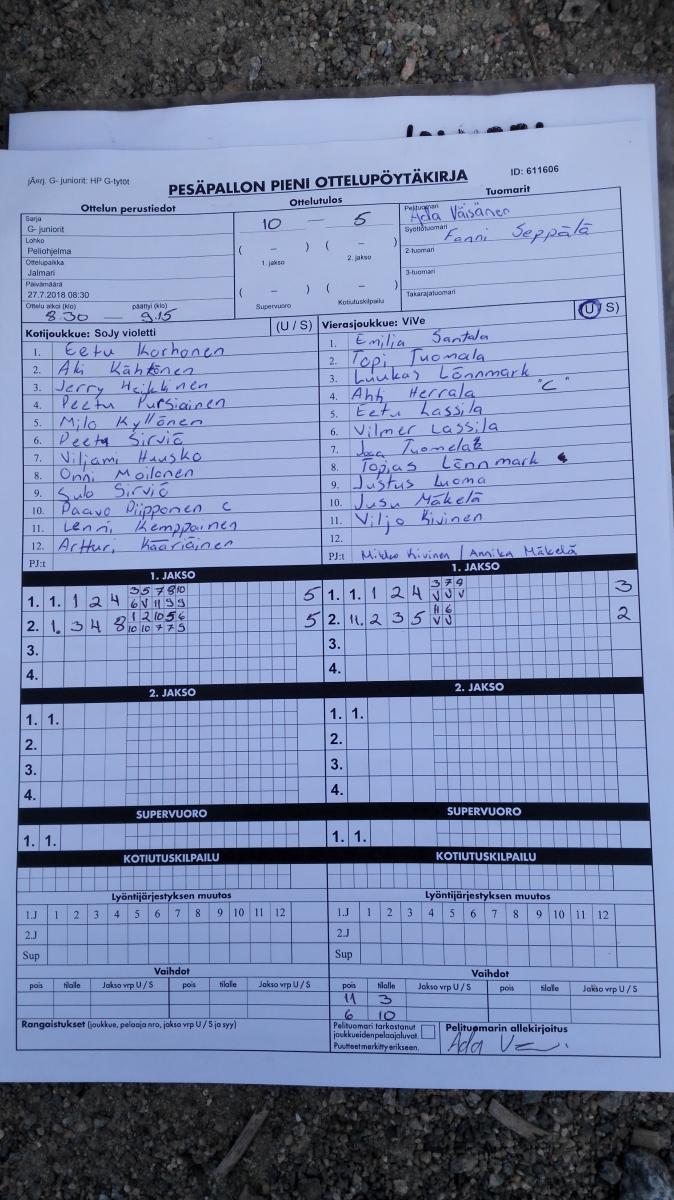 jÄerj. G- juniorit: HP G-tytöt
PESÄPALLON PIENI OTTELUPÖYTÄKIRJA
ID: 611606
Ottelun perustiedot
Sarja
G- juniorit
Lohko
Peliohjelma
Ottelupaikka
Jalmari
Päivämäärä
27.7.2018 08:30
Ottelu alkoi (klo) päättyi (klo)
8.30 — 9.15
Ottelutulos
10 — 5
( – ) ( – )
1. jakso 2. jakso
( – ) ( – )
Supervuoro Kotiutuskilpailu
Tuomarit
Pelituomari
Ada Väisänen
Syöttötuomari
Fanni Seppälä
2-tuomari
3-tuomari
Takarajatuomari
Kotijoukkue: SoJy violetti (U / S)
1. Eetu Korhonen
2. Aki Kähkönen
3. Jerry Heikkinen
4. Peetu Pursiainen
5. Milo Kyllönen
6. Peetu Sirviö
7. Viljami Huusko
8. Onni Moilanen
9. Sulo Sirviö
10. Paavo Piipponen C
11. Lenni Kemppainen
12. Artturi Kääriäinen
PJ:t
Vierasjoukkue: ViVe (U / S)
1. Emilia Santala
2. Topi Tuomala
3. Luukas Lönnmark
4. Ahti Herrala "C"
5. Eetu Lassila
6. Vilmer Lassila
7. Tuomela
8. Topias Lönnmark
9. Justus Luoma
10. Jusu Mäkelä
11. Viljo Kivinen
12.
PJ:t Mikko Kivinen / Annika Mäkelä
1. JAKSO
1. 1. 1 2 4 3 5 7 8 10 5
6 V 11 9 9
2. 1. 3 4 8 1 2 10 5 6 5
10 10 7 7 9
3.
4.
1. JAKSO
1. 1. 1 2 4 3 7 9 3
V V V
2. 11. 2 3 5 11 6 2
V V
3.
4.
2. JAKSO
1. 1.
2.
3.
4.
2. JAKSO
1. 1.
2.
3.
4.
SUPERVUORO
1. 1.
SUPERVUORO
1. 1.
KOTIUTUSKILPAILU
KOTIUTUSKILPAILU
Lyöntijärjestyksen muutos
1.J 1 2 3 4 5 6 7 8 9 10 11 12
2.J
Sup
Lyöntijärjestyksen muutos
1.J 1 2 3 4 5 6 7 8 9 10 11 12
2.J
Sup
Vaihdot
pois tilalle Jakso vrp U / S pois tilalle Jakso vrp U / S
Vaihdot
pois tilalle Jakso vrp U / S pois tilalle Jakso vrp U / S
11 3
6 10
Rangaistukset (joukkue, pelaaja nro, jakso vrp U / S ja syy)
Pelituomari tarkastanut
joukkueiden pelaajaluvat.
Puutteet merkitty erikseen.
Pelituomarin allekirjoitus
Ada